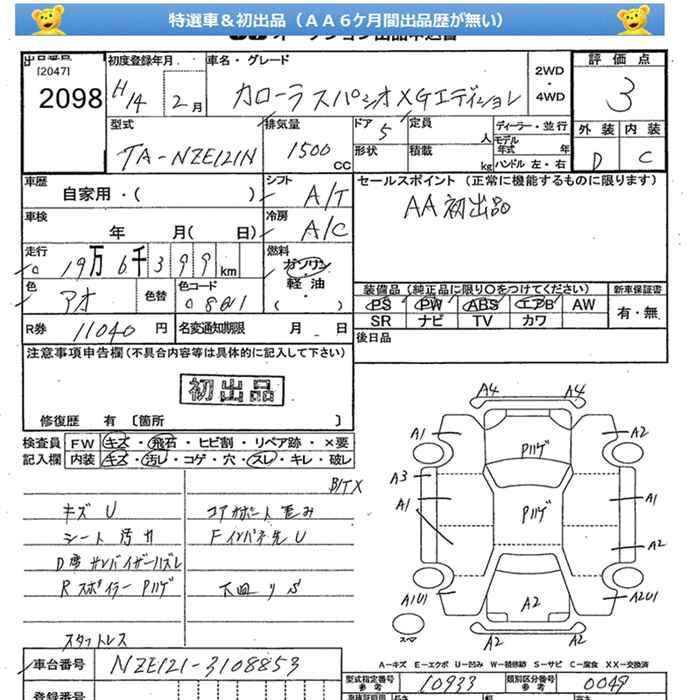 特選車＆初出品（ＡＡ６ケ月間出品歴が無い）
出品番号
[2047]
2098
初度登録年月
H14 2月
車名・グレード
カローラスパシオXGエディション
2WD
・
4WD
評価点
3
外装 内装
D C
型式
TA-NZE121N
排気量
1500 CC
ドア 5
形状
定員 人
積載 kg
ディーラー・並行
モデル年式 年
ハンドル 左・右
車歴
自家用・( )
シフト
A/T
セールスポイント (正常に機能するものに限ります)
AA初出品
車検
年 月( 日)
冷房
A/C
走行
19万6千399km
燃料
ガソリン
・
軽油
( )
色
アオ
色替
色コード
R券 11040 円
名変通知期限 月 日
装備品 (純正品に限り〇をつけてください)
新車保証書
PS PW ABS エアB AW
有・無
SR ナビ TV カワ
後日品
注意事項申告欄(不具合内容等は具体的に記入して下さい)
初出品
修復歴 有〔箇所 〕
検査員記入欄
FW キズ・飛石・ヒビ割・リペア跡・×要
内装 キズ・汚レ・コゲ・穴・スレ・キレ・破レ
キズ U
シート汚れ
R スポイラー Pハゲ
コアサポート歪み
Fインパネ先U
スタットレス
A4 A4
A1 Pハゲ A2
A3
A1 Pハゲ A1
A2
A1U1 A2 A2U1
スペア
A2 A2
A－キズ E－エクボ U－凹み W－補修跡 S－サビ C－腐食 XX－交換済
車台番号 NZE121-3108853
型式指定番号 参考 10933
類別区分番号 参考 0049
登録番号